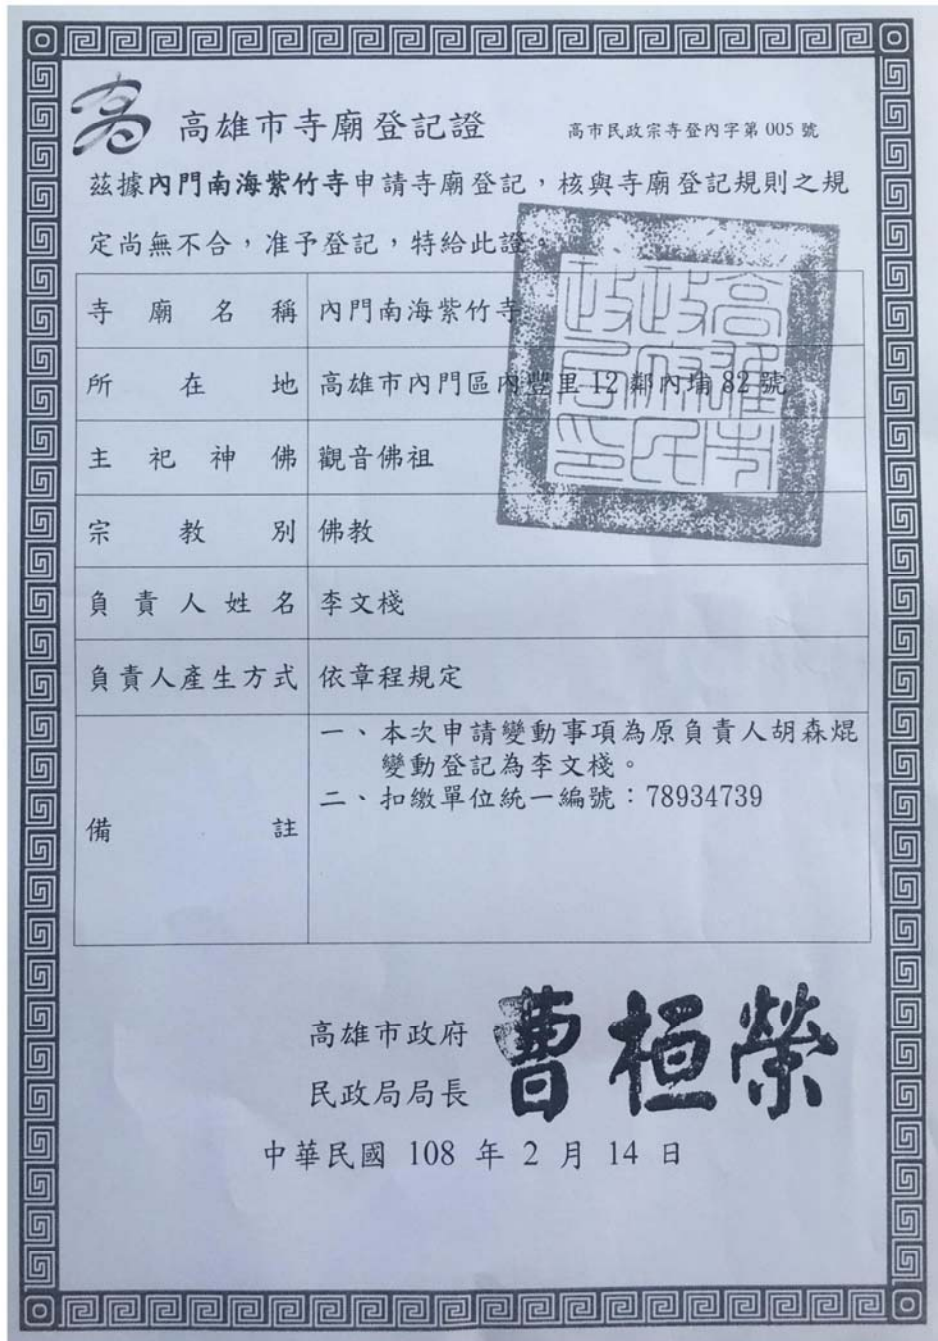 高雄市寺廟登記證
高市民政宗寺登內字第 005 號
茲據內門南海紫竹寺申請寺廟登記，核與寺廟登記規則之規
定尚無不合，准予登記，特給此證。
寺廟名稱 內門南海紫竹寺
所在地 高雄市內門區內豐里 12 鄰內埔 82 號
主祀神佛 觀音佛祖
宗教別 佛教
負責人姓名 李文棧
負責人產生方式 依章程規定
備註
一、本次申請變動事項為原負責人胡森焜
變動登記為李文棧。
二、扣繳單位統一編號：78934739
高雄市政府
民政局局長
曹桓榮
中華民國 108 年 2 月 14 日
高雄市政府民政局印